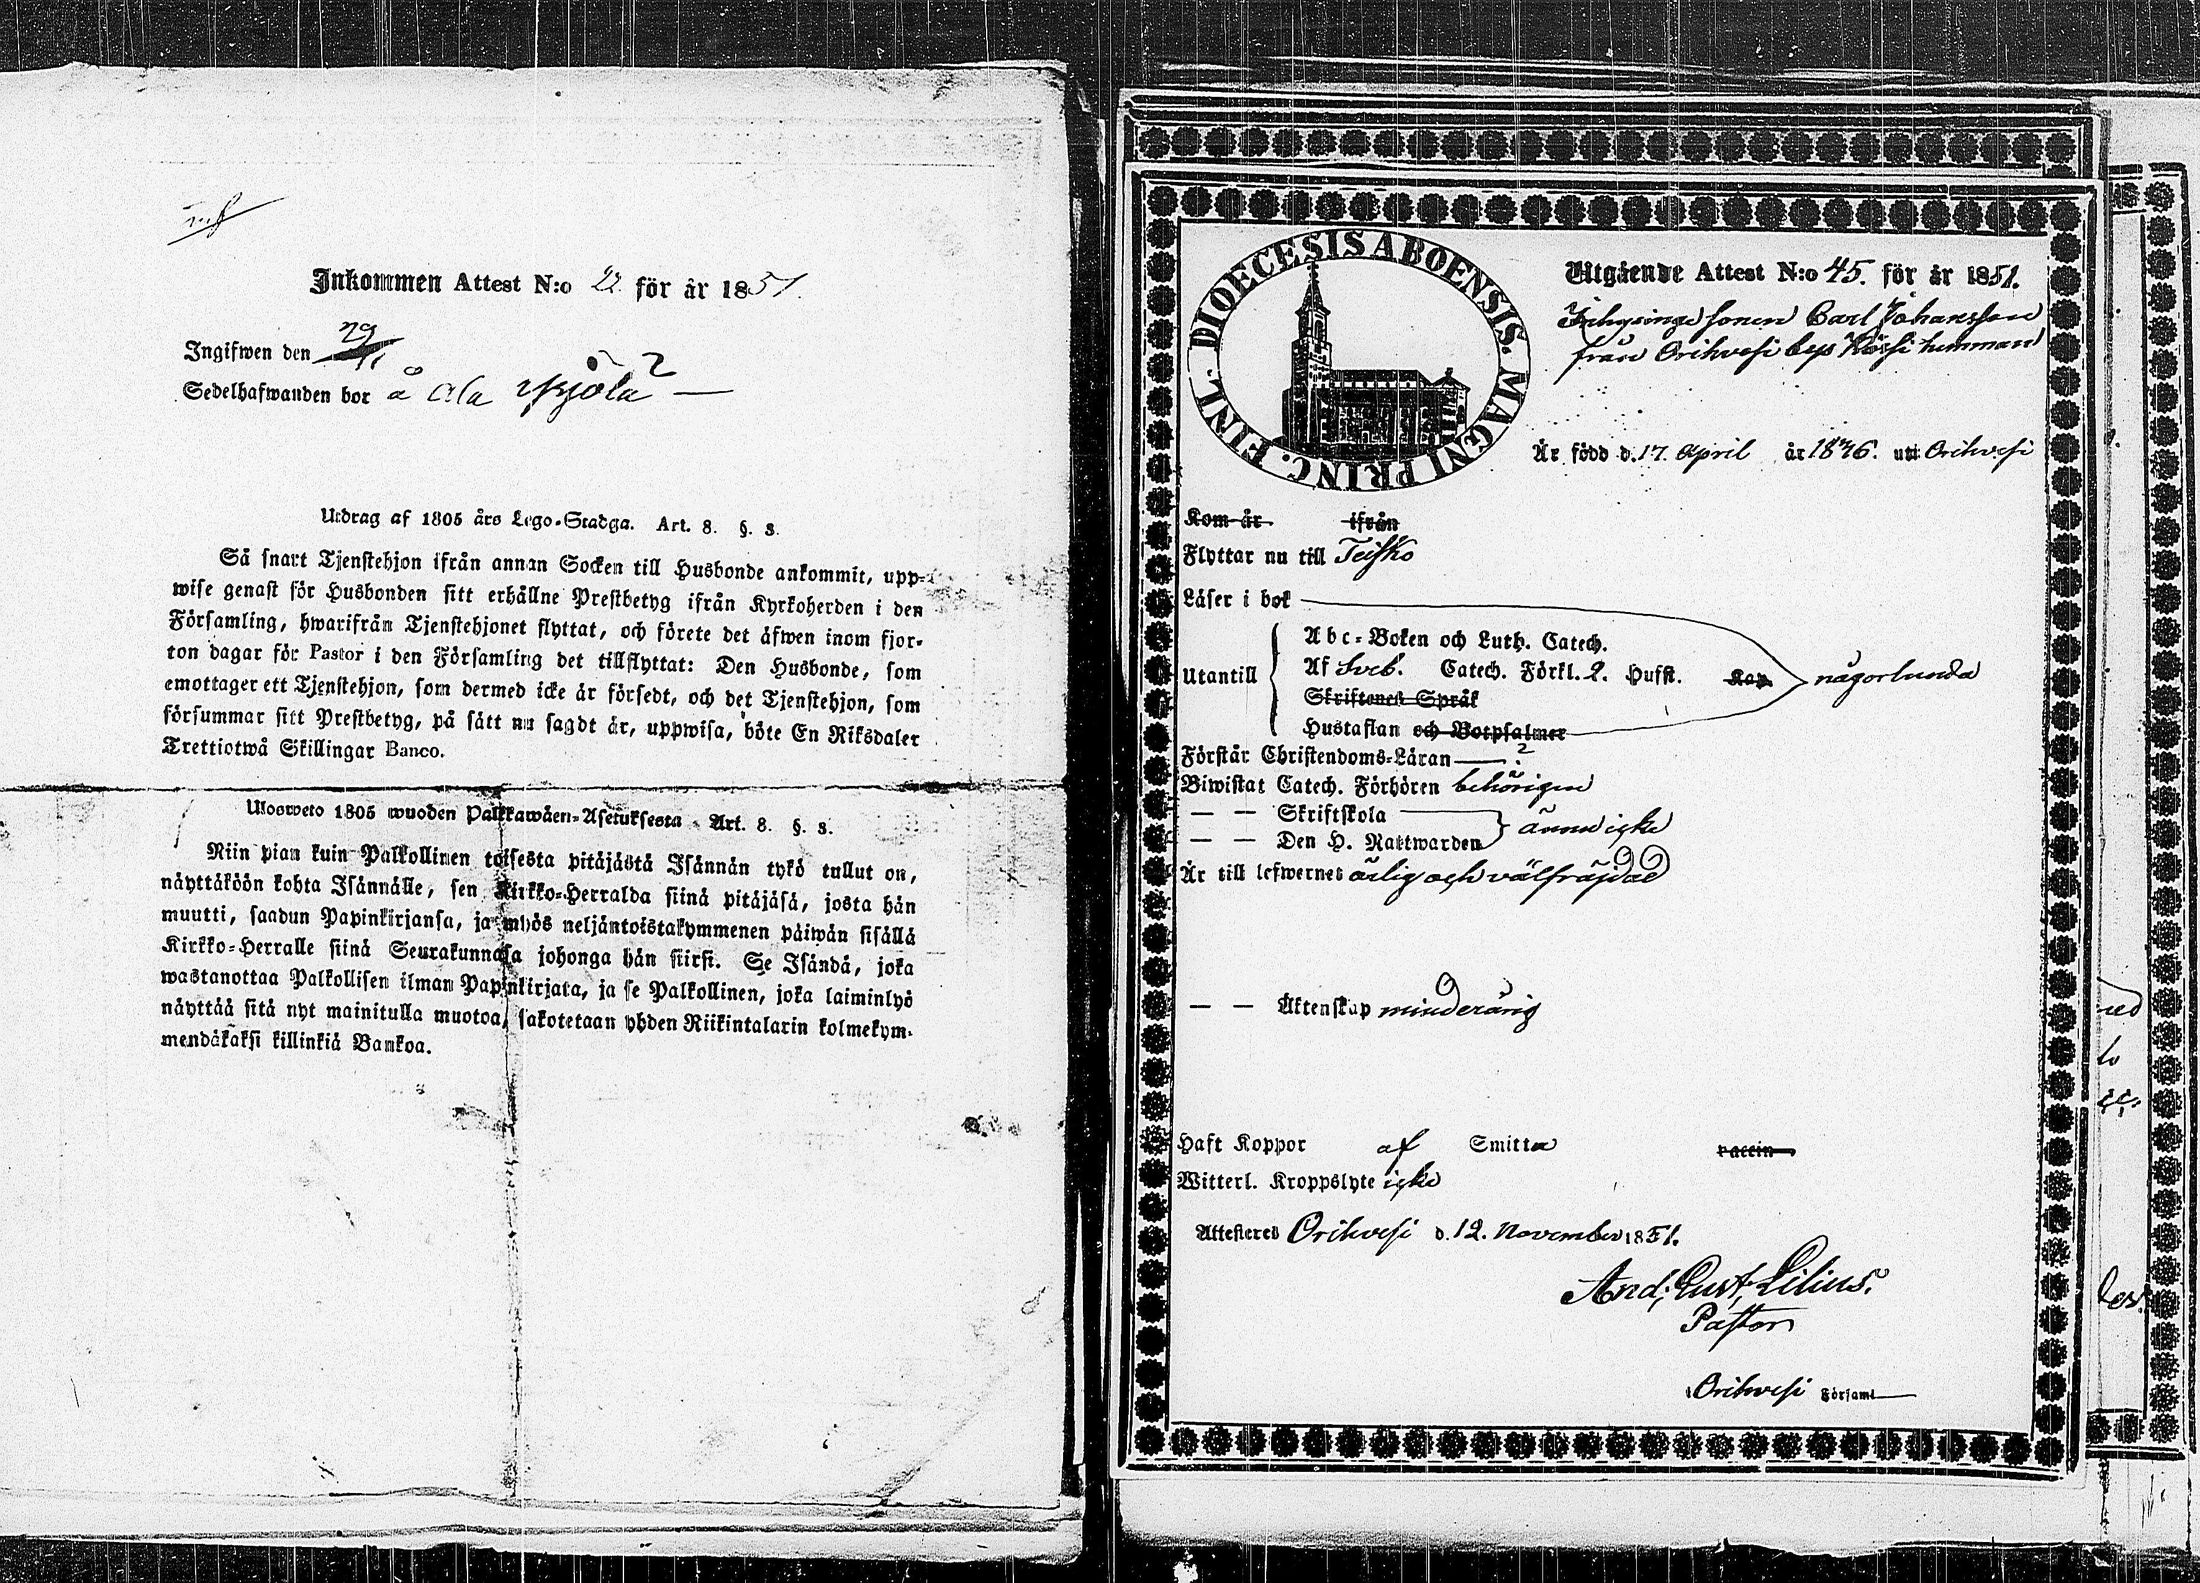 Inkommen Attest N:o 22 för år 1851.
Ingifwen den 29/11
Sedelhafwanden bor å Ala
Utdrag af 1805 års Lego-Stadga. Art. 8. §. 3.
Så snart Tjenstehjon ifrån annan Socken till Husbonde ankommit, upp-
wise genast för Husbonden sitt erhållne Prestbetyg ifrån Kyrkoherden i den
Församling, hwarifrån Tjenstehjonet flyttat, och förete det äfwen inom fjor-
ton dagar för Pastor i den Församling det tillflyttat: Den Husbonde, som
emottager ett Tjenstehjon, som dermed icke är försedt, och det Tjenstehjon, som
försummar sitt Prestbetyg, på sätt nu sagdt är, uppwisa, böte En Riksdaler
Trettiotwå Skillingar Banco.
Ulosweto 1805 wuoden Palkkawäen-Asetuksesta Art. 8. §. 3.
Niin pian kuin Palkollinen toisesta pitäjästä Isännän tykö tullut on,
näyttäköön kohta Isännälle, sen Kirkko-Herralda siinä pitäjäsä, josta hän
muutti, saadun Papinkirjansa, ja myös neljäntoistakymmenen päiwän sisällä
Kirkko-Herralle siinä Seurakunnasa johonga hän siirsi. Se Isändä, joka
wastanottaa Palkollisen ilman Papinkirjata, ja se Palkollinen, joka laiminlyö
näyttää sitä nyt mainitulla muotoa, sakotetaan yhden Riikintalarin kolmekym-
mendäkaksi killinkiä Bankoa.
DIOECESIS ABOENSIS. MAGNI PRINC. FINL.
Utgående Attest N:o 45. för år 1851.
sonen Carl Johansson
från Orihvesi by hemman
Är född d. 17. April år 1836. uti Orihvesi
Kom år ifrån
Flyttar nu till Teisko
Läser i bok
Utantill
Abc-Boken och Luth. Catech.
Af Sveb. Catech. Förkl. 2. Hufst. Kap. någorlunda
Skriftenes Språk
Hustaflan och Botpsalmer
Förstår Christendoms-Läran — ?
Biwistat Catech. Förhören behörigen
— — Skriftskola
— — Den H. Nattwarden ännu icke
Är till lefwernet ärlig och välfräjdad
— — Äktenskap minderårig
Haft Koppor af Smitta vaccin
Witterl. Kroppslyte icke
Attesteres Orihvesi d. 12. November 1851.
And. Gust. Lilius.
Pastor
i Orihvesi Församl